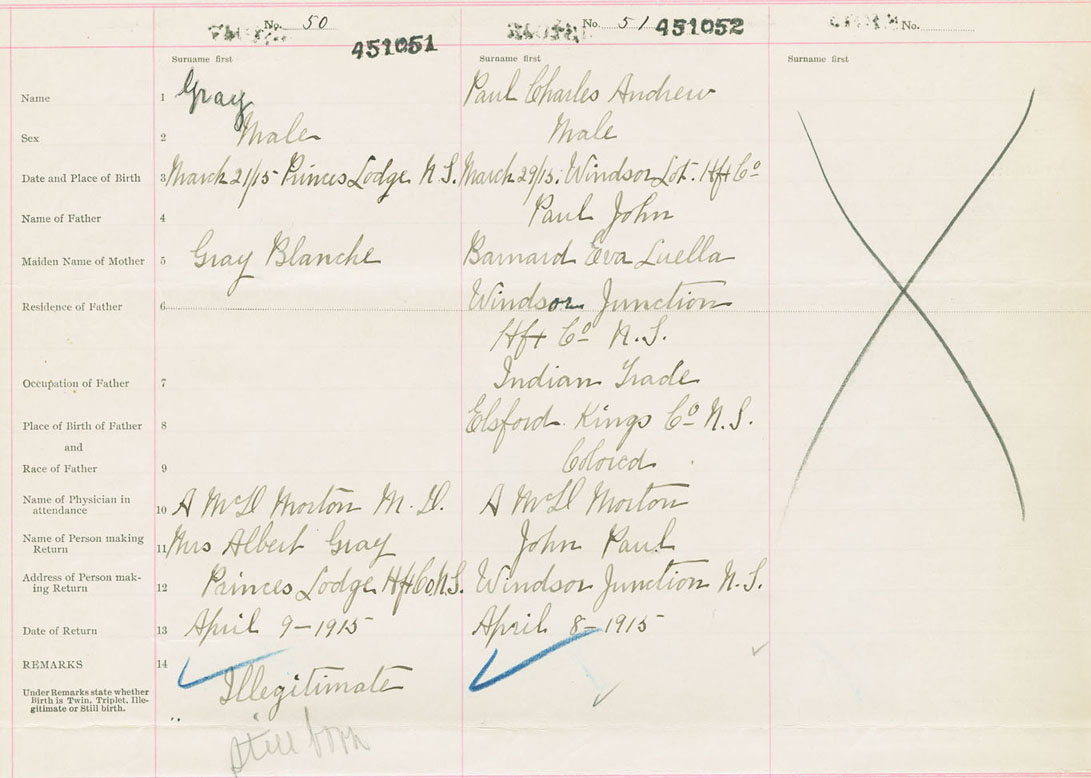 No. 50
451051
No. 51
451052
No.
Surname first
Surname first
Surname first
Name 1 Gray Paul Charles Andrew
Sex 2 Male Male
Date and Place of Birth 3 March 21/15 Princes Lodge N.S. March 29/15. Windsor Lot. Hfx Co
Name of Father 4 Paul John
Maiden Name of Mother 5 Gray Blanche Barnard Eva Luella
Residence of Father 6 Windsor Junction
Hfx Co N.S.
Occupation of Father 7 Indian Trade
Place of Birth of Father 8 Elsford Kings Co N.S.
and
Race of Father 9 Colored
Name of Physician in
attendance 10 A McD Morton M.D. A McD Morton
Name of Person making
Return 11 Mrs Albert Gray John Paul
Address of Person mak-
ing Return 12 Princes Lodge Hfx Co N.S. Windsor Junction N.S.
Date of Return 13 April 9-1915 April 8-1915
REMARKS 14 Illegitimate
Under Remarks state whether
Birth is Twin, Triplet, Ille-
gitimate or Still birth.
still born